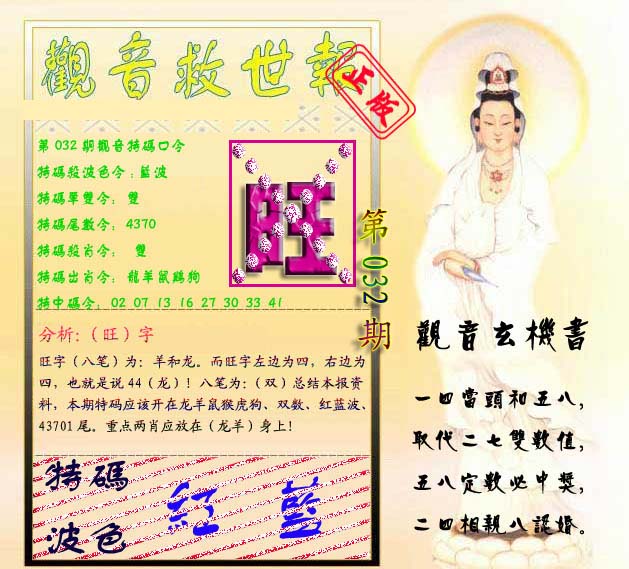 觀音救世報
正版
第 032 期觀音特碼口令
特碼殺波色令：藍波
特碼單雙令： 雙
特碼尾數令： 4370
特碼殺肖令： 雙
特碼出肖令： 龍羊鼠鷄狗
特中碼令： 02 07 13 16 27 30 33 41
旺
第 032 期
分析：（旺）字
旺字（八笔）为：羊和龙。而旺字左边为四，右边为
四，也就是说 44（龙）！八笔为：（双）总结本报资
料，本期特码应该开在龙羊鼠猴虎狗、双数、红蓝波、
43701 尾。重点两肖应放在（龙羊）身上！
特碼
波色
紅 藍
觀音玄機書
一四當頭和五八，
取代二七雙數值，
五八定數必中獎，
二四相親八認婚。